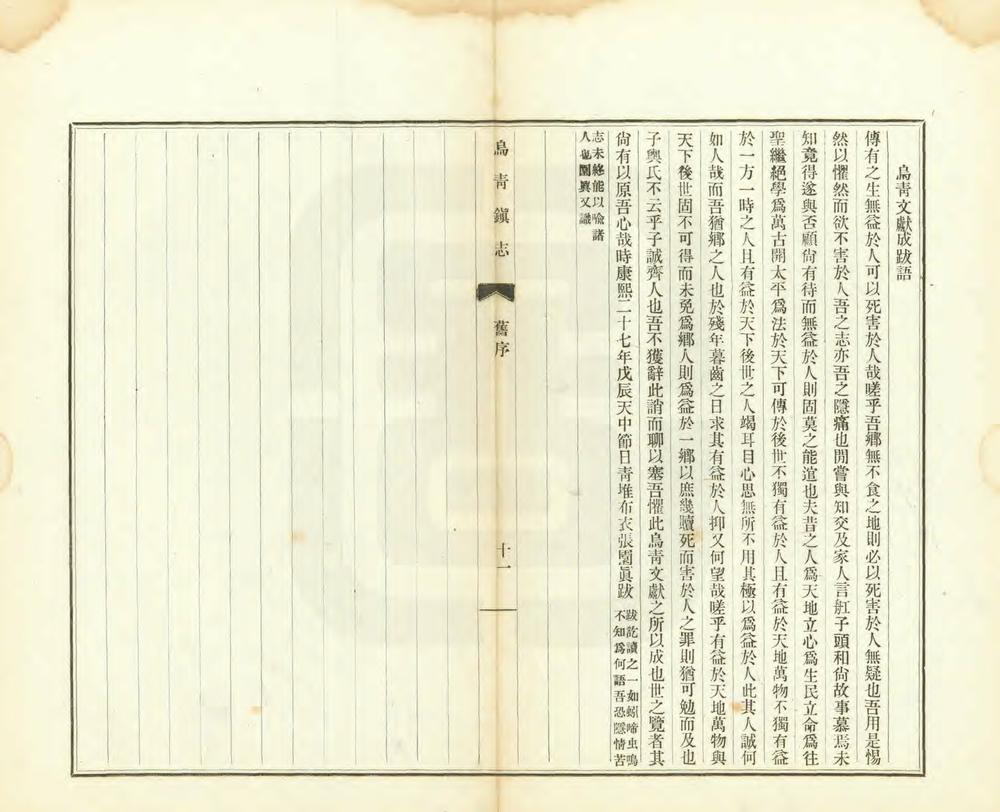 烏青文獻成跋語
傳有之生無益於人可以死害於人哉嗟乎吾鄉無不食之地則必以死害於人無疑也吾用是惕
然以懼然而欲不害於人吾之志亦吾之隱痛也閒嘗與知交及家人言舡子頭和尙故事慕焉未
知竟得遂與否顧尙有待而無益於人則固莫之能逭也夫昔之人爲天地立心爲生民立命爲往
聖繼絕學爲萬古開太平爲法於天下可傳於後世不獨有益於人且有益於天地萬物不獨有益
於一方一時之人且有益於天下後世之人竭耳目心思無所不用其極以爲益於人此其人誠何
如人哉而吾猶鄉之人也於殘年暮齒之日求其有益於人抑又何望哉嗟乎有益於天地萬物與
天下後世固不可得而未免爲鄉人則爲益於一鄉以庶幾贖死而害於人之罪則猶可勉而及也
子輿氏不云乎子誠齊人也吾不獲辭此誚而聊以塞吾懼此烏青文獻之所以成也世之覽者其
尙有以原吾心哉時康熙二十七年戊辰天中節日青堆布衣張園眞跋
跋訖讀之一如蚓啼虫鳴
不知爲何語吾恐隱情苦
志未終能以喻諸
人也園眞又識
烏青鎭志
舊序
十一